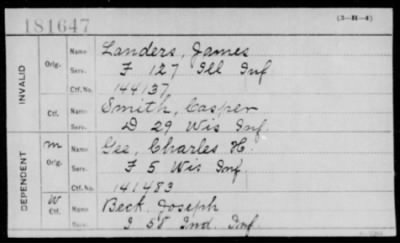 181647
(3-H-4)
INVALID
Orig.
Name Landers, James
Serv. F 127 Ill Inf
Ctf. No. 144137
Ctf.
Name Smith, Casper
Serv. D 29 Wis Inf.
DEPENDENT
M Orig.
Name Gee, Charles H.
Serv. F 5 Wis Inf
Ctf. No. 141483
W Ctf.
Name Beck, Joseph
Serv. I 58 Ind. Inf.